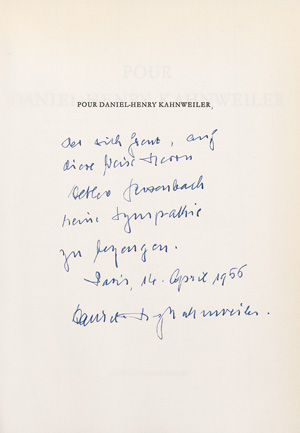 POUR
DANIEL-HENRY KAHNWEILER
POUR DANIEL-HENRY KAHNWEILER,
der sich freut, auf
diese Weise Herrn
Detlev Rosenbach
seine Sympathie
zu bezeugen.
Paris, 14. April 1966
Daniel-Henry Kahnweiler.